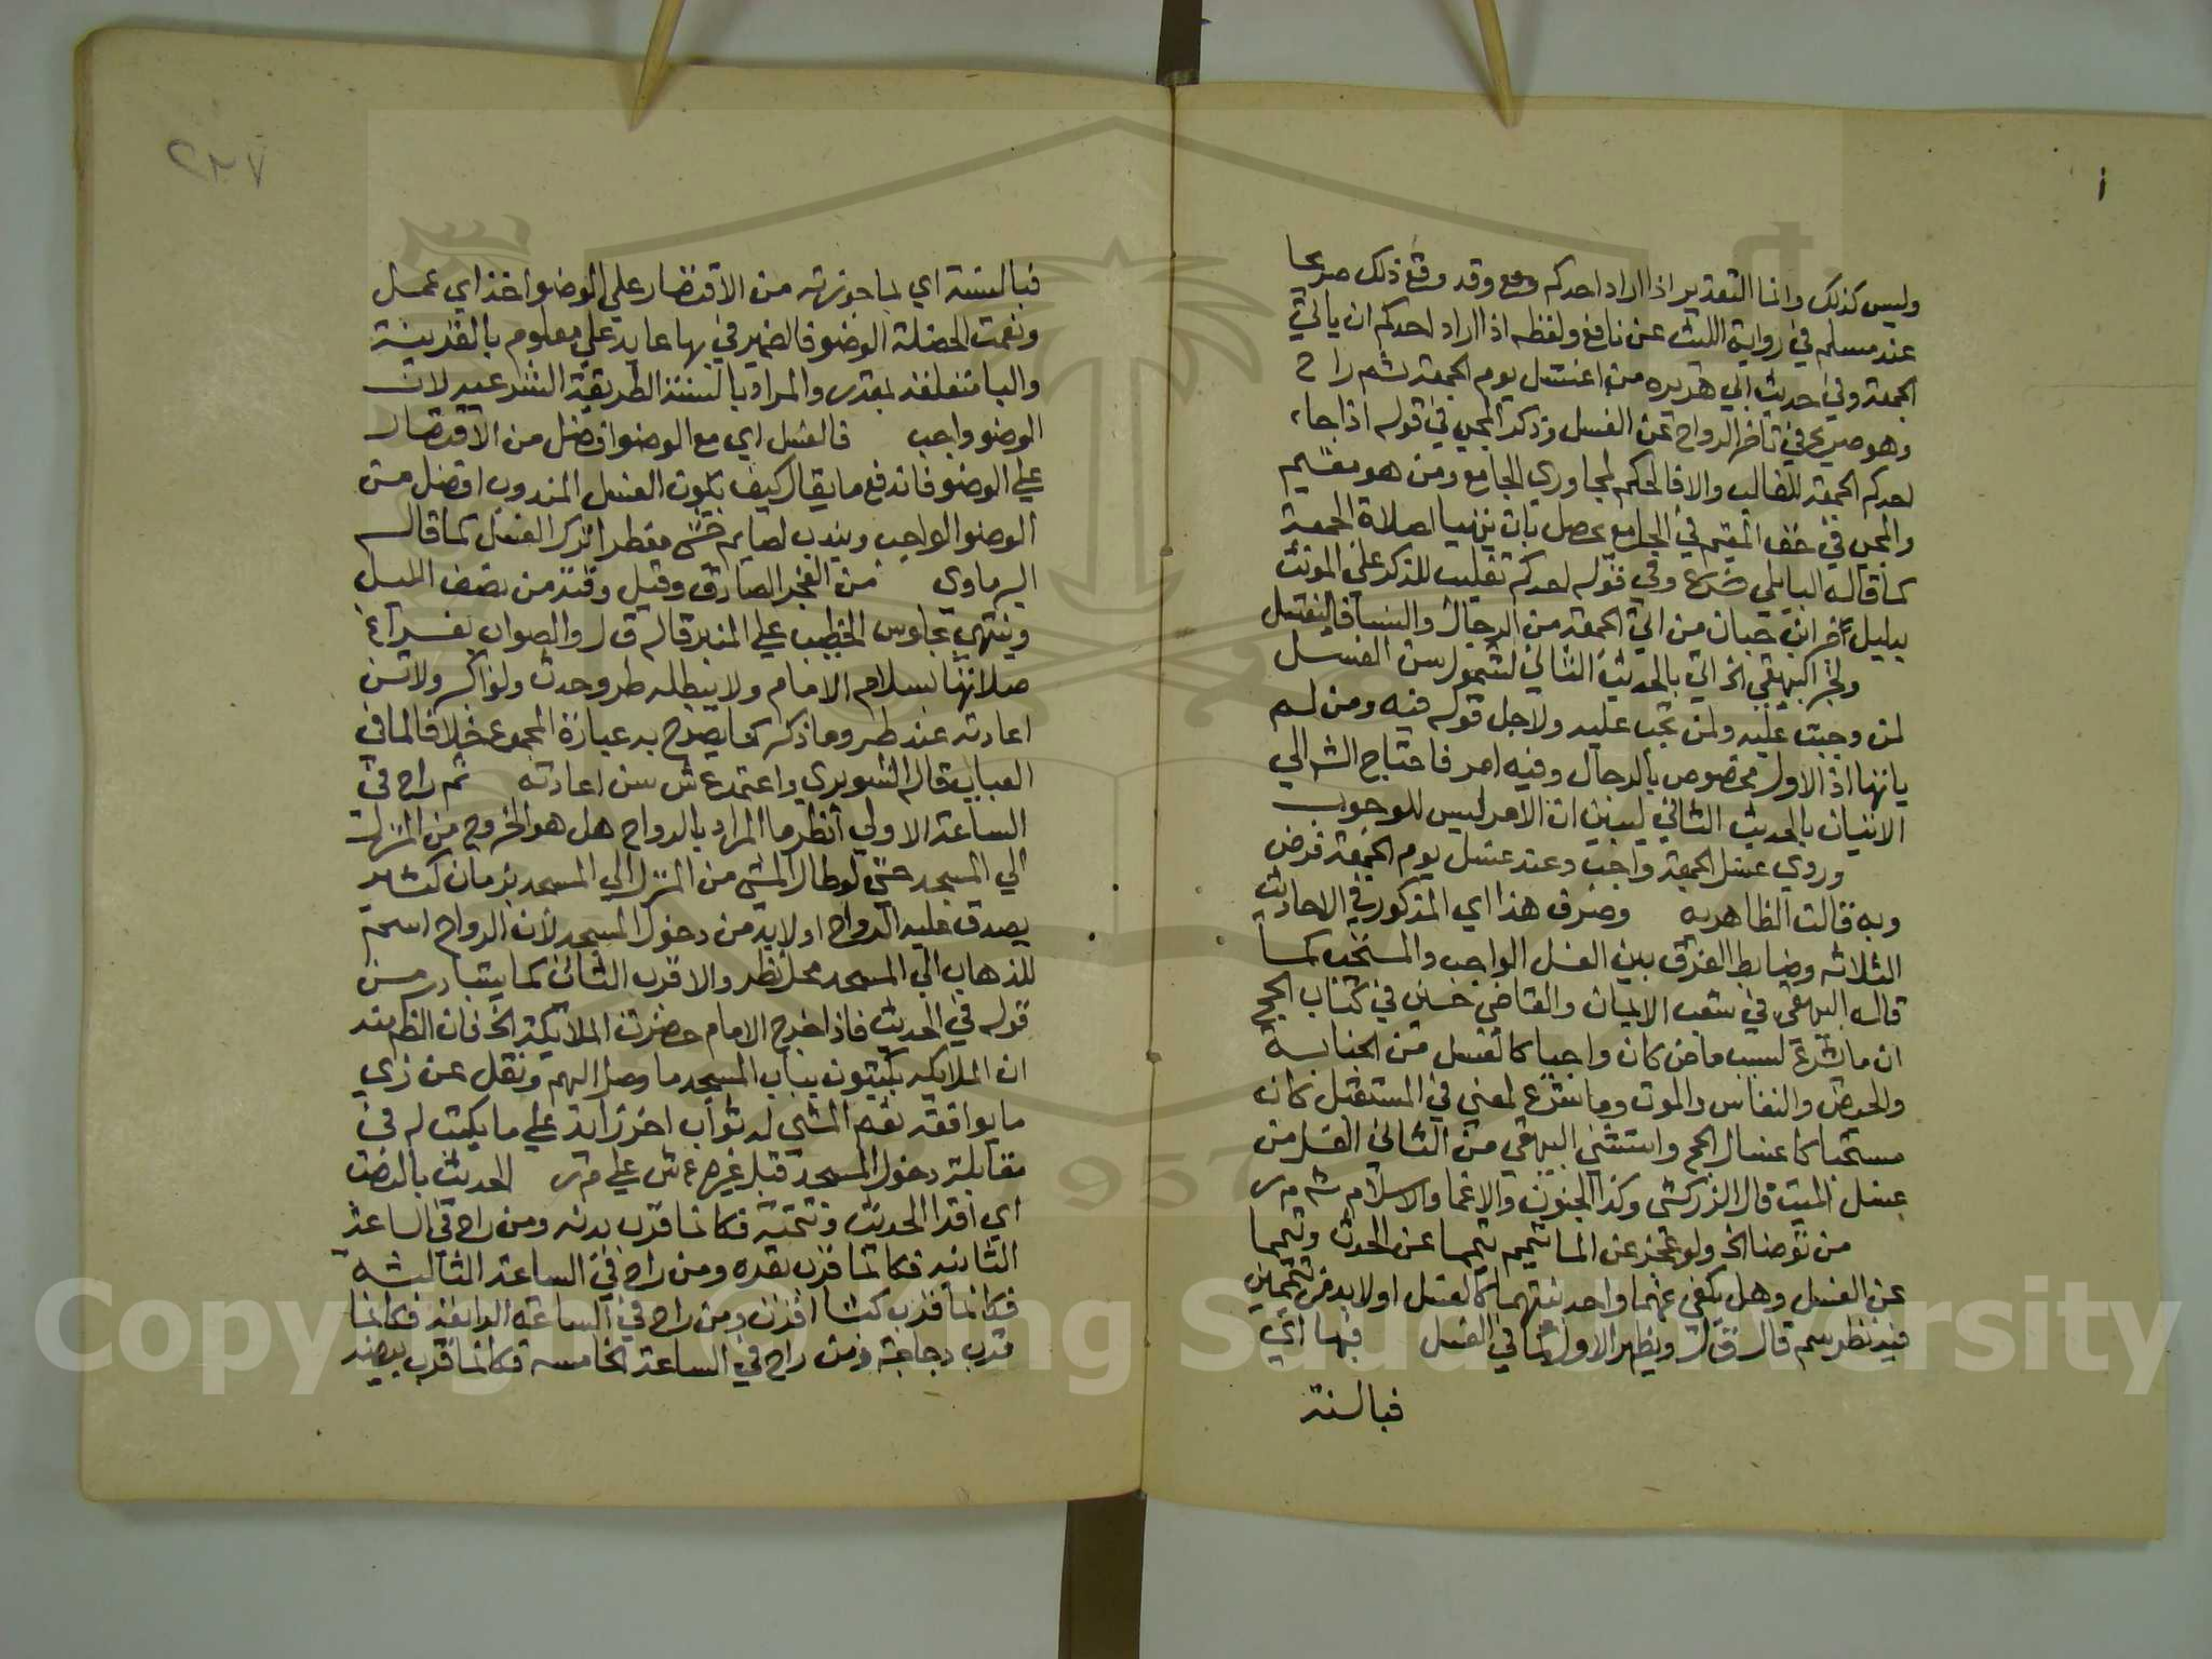 وليس كذلك وانما التقدير اذا اراد احدكم وقد وقع ذلك صريحا
عند مسلم في رواية الليث عن نافع ولفظه اذا اراد احدكم ان ياتي
الجمعة وفي حديث ابي هريره من اغتسل يوم الجمعة ثم راح
وهو صريح في تاخر الرواح عن الغسل وذكر المجي في قوله اذا جاء
احدكم الجمعة للغالب والا فالحكم لمجاوري الجامع ومن هو مقيم
والمجي في حق المقيم في الجامع يحصل بان يتهيا لصلاة الجمعة
كما قاله البابلي وفي قوله احدكم تغليب للذكر علي المونث
بدليل خبر ابن حبان من اتي الجمعة من الرجال والنسا فاليغتسل
ولخبر البيهقي الخ اتي بالحديث الثاني لشموله سن الغسل
لمن وجبت عليه ولمن تجب عليه ولاجل قوله فيه ومن لم
ياتها اذ الاول مخصوص بالرجال وفيه امر فاحتاج الش الي
الاتيان بالحديث الثاني ليبين ان الامر ليس للوجوب
وروي غسل الجمعة واجب وعند غسل يوم الجمعة فرض
وبه قالت الظاهريه وصرف هذا اي المذكور في الاحاديث
الثلاثه وضابط الفرق بين الغسل الواجب والمستحب كما
قاله البيهقي في شعب الايمان والقاضي حسين في كتاب الحج
ان ما شرع لسبب ماض كان واجبا كالغسل من الجنابة
والحيض والنفاس والموت وما شرع لمعني في المستقبل كان
مستحبا كاغسال الحج واستثني البيهقي من الثاني الغسل من
غسل الميت قال الزركشي وكذا الجنون والاغما والاسلام ش م ر
من توضا الخ ولو عجز عن الما تيمم تيمما عن الحدث وتيمما
عن الغسل وهل يكفي عنهما واحد بنيتهما كالغسل او لا بد من تيممين
فيه نظر سم قال ق ل ويظهر الاول كما في الغسل فبها اي
فبالسنة
٢٣٧
فبالسنة اي بما جوزته من الاقتصار علي الوضو اخذ اي عمل
ونعمت الخصلة الوضو فالضمير في بها عايد علي معلوم بالقرينة
والبا متعلقة بمقدر والمراد بالسنة الطريقة الشرعيه لان
الوضو واجب فالغسل اي مع الوضو افضل من الاقتصار
علي الوضو فاندفع ما يقال كيف يكون الغسل المندوب افضل من
الوضو الواجب ويندب لصايم خشي مفطرا ترك الغسل كما قاله
البرماوي من الفجر الصادق وقيل وقته من نصف الليل
وينتهي بجلوس الخطيب علي المنبر قاله ق ل والصواب
صلاتها بسلام الامام ولا يبطله طرو حدث ولو اكبر ولا تسن
اعادته عند طروما ذكر كما يصرح به عبارة المجموع خلافا لما في
العباب قاله الشوبري واعتمد ع ش سن اعادته ثم راح في
الساعة الاولي انظر ما المراد بالرواح هل هو الخروج من المنزل
الي المسجد حتي لو طال المشي من المنزل الي المسجد بزمان كثير
يصدق عليه الرواح او لا بد من دخول المسجد لان الرواح اسم
للذهاب الي المسجد محل نظر والاقرب الثاني كما يتبادر من
قوله في الحديث فاذا خرج الامام حضرت الملائكة الخ فان الظ منه
ان الملايكه يكتبون بباب المسجد ما وصل اليهم ونقل عن زي
ما يوافقه نعم المشي له ثواب اخر زايد علي ما يكتب له في
مقابلة دخول المسجد قبل غيره ع ش علي م ر الحديث بالنصب
اي اقرا الحديث وتتمته فكانما قرب بدنه ومن راح في الساعة
الثانيه فكانما قرب بقره ومن راح في الساعة الثالثة
فكانما قرب كبشا اقرن ومن راح في الساعة الرابعة فكانما
قرب دجاجة ومن راح في الساعة الخامسه فكانما قرب بيضه
Copyright © King Saud University
1957